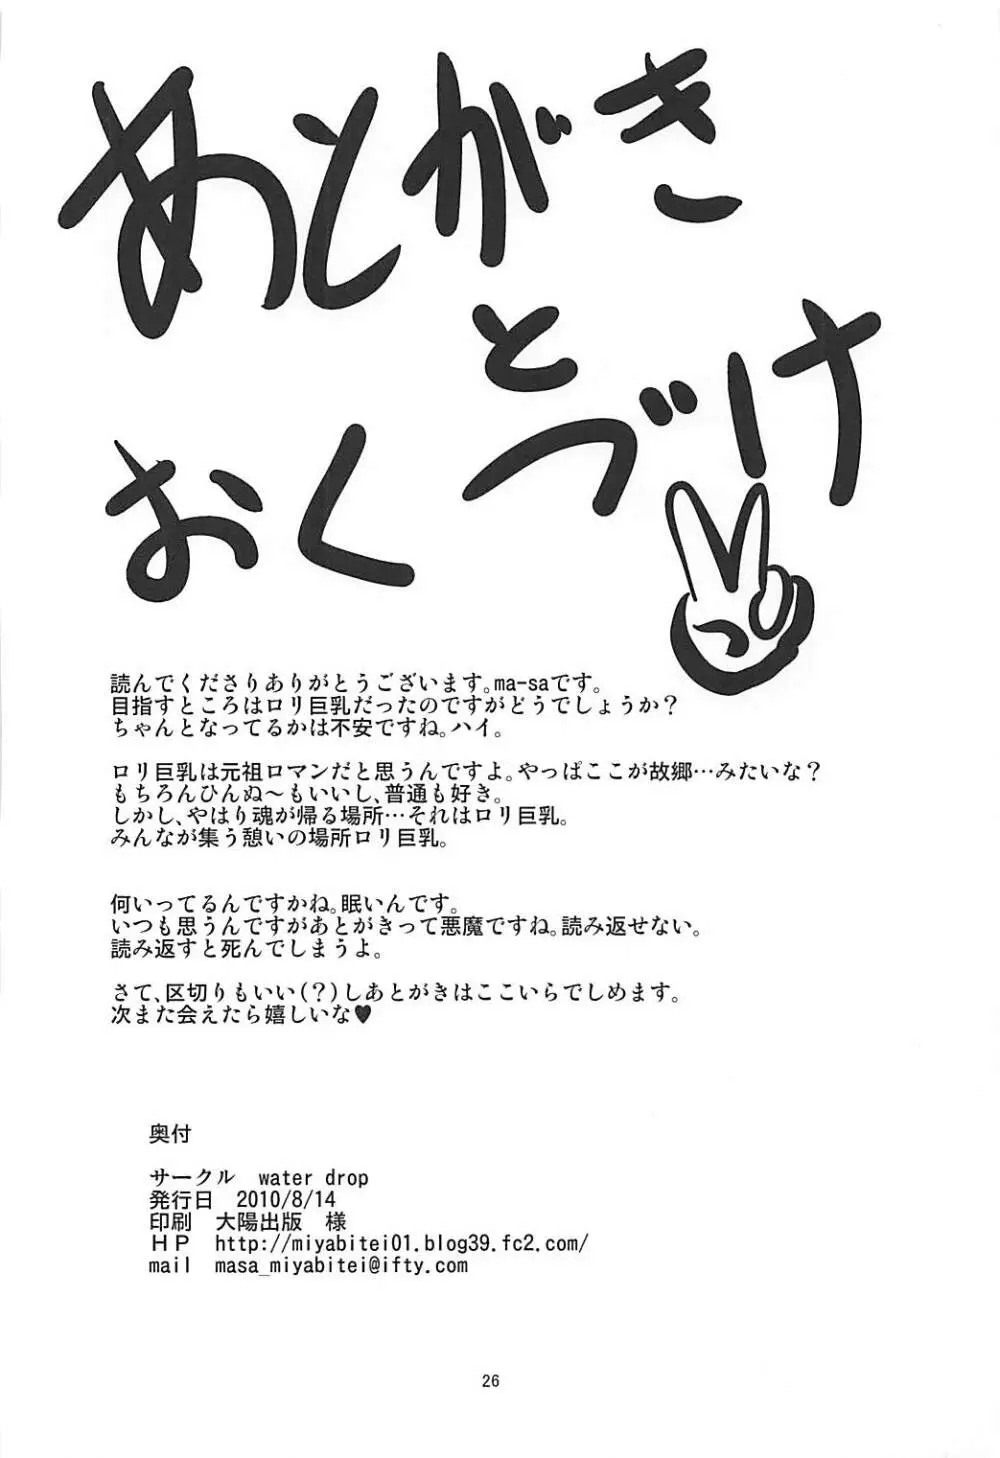 あとがき
と
おくづけ
読んでくださりありがとうございます。ma-saです。
目指すところはロリ巨乳だったのですがどうでしょうか?
ちゃんとなってるかは不安ですね。ハイ。
ロリ巨乳は元祖ロマンだと思うんですよ。やっぱここが故郷…みたいな?
もちろんひんぬ～もいいし、普通も好き。
しかし、やはり魂が帰る場所…それはロリ巨乳。
みんなが集う憩いの場所ロリ巨乳。
何いってるんですかね。眠いんです。
いつも思うんですがあとがきって悪魔ですね。読み返せない。
読み返すと死んでしまうよ。
さて、区切りもいい(?)しあとがきはここいらでしめます。
次また会えたら嬉しいな♥
奥付
サークル water drop
発行日 2010/8/14
印刷 大陽出版 様
ＨＰ http://miyabitei01.blog39.fc2.com/
mail masa_miyabitei@ifty.com
26